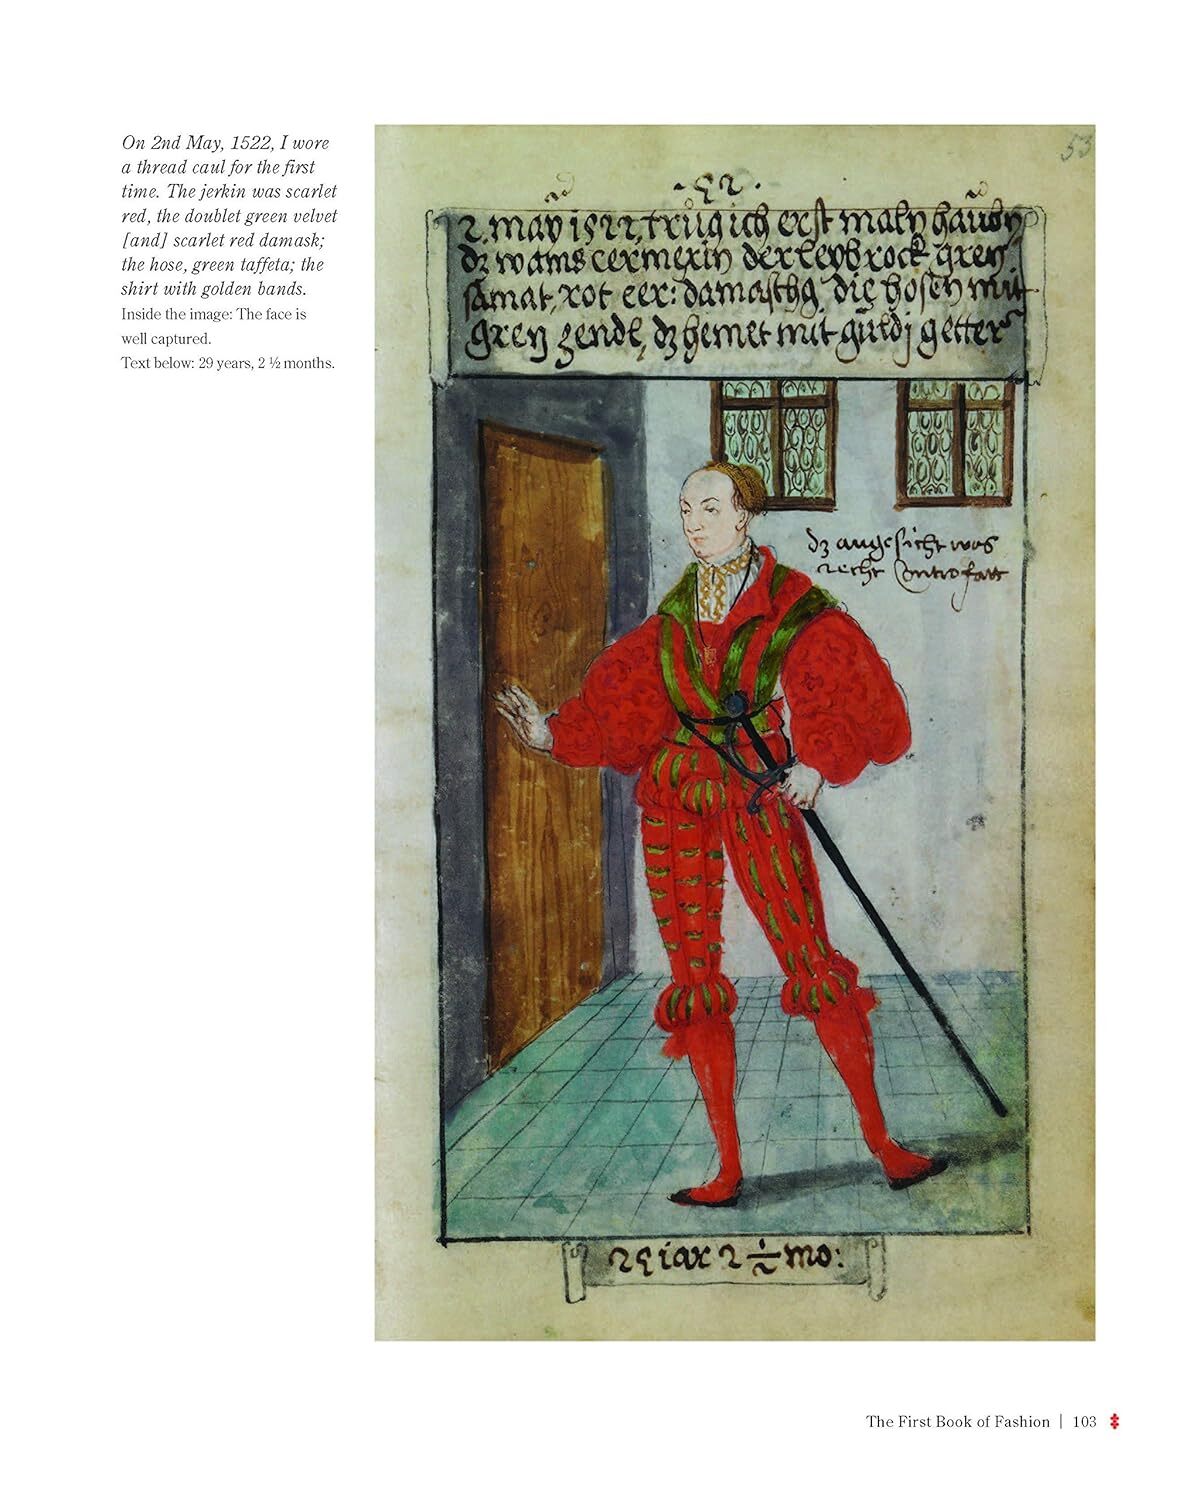 On 2nd May, 1522, I wore
a thread caul for the first
time. The jerkin was scarlet
red, the doublet green velvet
[and] scarlet red damask;
the hose, green taffeta; the
shirt with golden bands.
Inside the image: The face is
well captured.
Text below: 29 years, 2 ½ months.
53
2. may 1522, trůg ich erst maln
dz wams cermexin der leybrock gren
samat, rot die hosen mit
gren zendl, dz hemet mit guldj getter
dz angesicht was
recht
29 iar 2 ½ mo:
The First Book of Fashion | 103